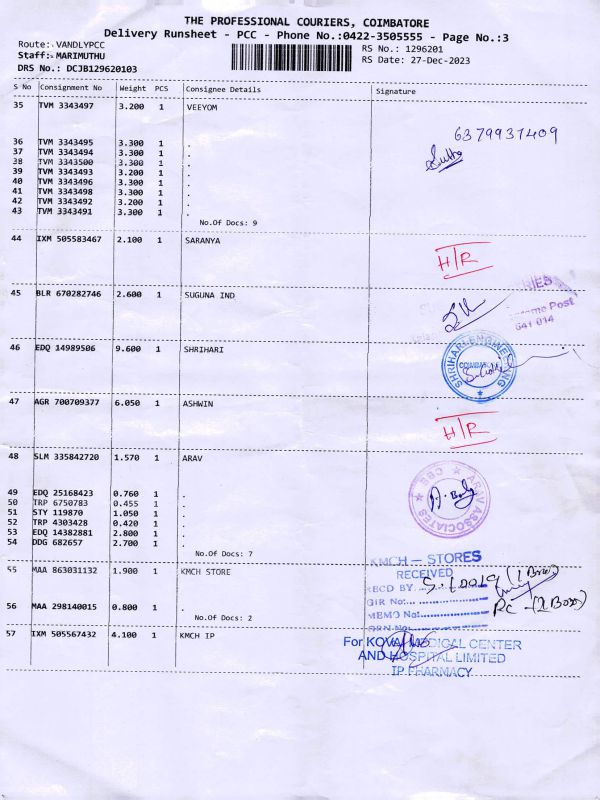 THE PROFESSIONAL COURIERS, COIMBATORE
Delivery Runsheet - PCC - Phone No.:0422-3505555 - Page No.:3
Route: VANDLYPCC
RS No.: 1296201
Staff: MARIMUTHU
RS Date: 27-Dec-2023
DRS No.: DCJB129620103
S No Consignment No Weight PCS Consignee Details Signature
35 TVM 3343497 3.200 1 VEEYOM
6379937409
36 TVM 3343495 3.300 1 .
37 TVM 3343494 3.300 1 .
38 TVM 3343500 3.300 1 .
39 TVM 3343493 3.200 1 .
40 TVM 3343496 3.300 1 .
41 TVM 3343498 3.300 1 .
42 TVM 3343492 3.200 1 .
43 TVM 3343491 3.300 1 .
No.Of Docs: 9
44 IXM 505583467 2.100 1 SARANYA
H/R
45 BLR 670282746 2.600 1 SUGUNA IND
Post
641 014
46 EDQ 14989506 9.600 1 SHRIHARI
SHRIHARI ENGINEERING
47 AGR 700709377 6.050 1 ASHWIN
H/R
48 SLM 335842720 1.570 1 ARAV
ARAV ASSOCIATES
49 EDQ 25168423 0.760 1 .
50 TRP 6750783 0.455 1 .
51 STY 119870 1.050 1 .
52 TRP 4303428 0.420 1 .
53 EDQ 14382881 2.800 1 .
54 DDG 682657 2.700 1 .
No.Of Docs: 7
KMCH - STORES
RECEIVED
55 MAA 863031132 1.900 1 KMCH STORE
RECD BY
GIR No:
56 MAA 298140015 0.800 1
MEMO No:
No.Of Docs: 2
57 IXM 505567432 4.100 1 KMCH IP
For KOVAI MEDICAL CENTER
AND HOSPITAL LIMITED
IP PHARMACY